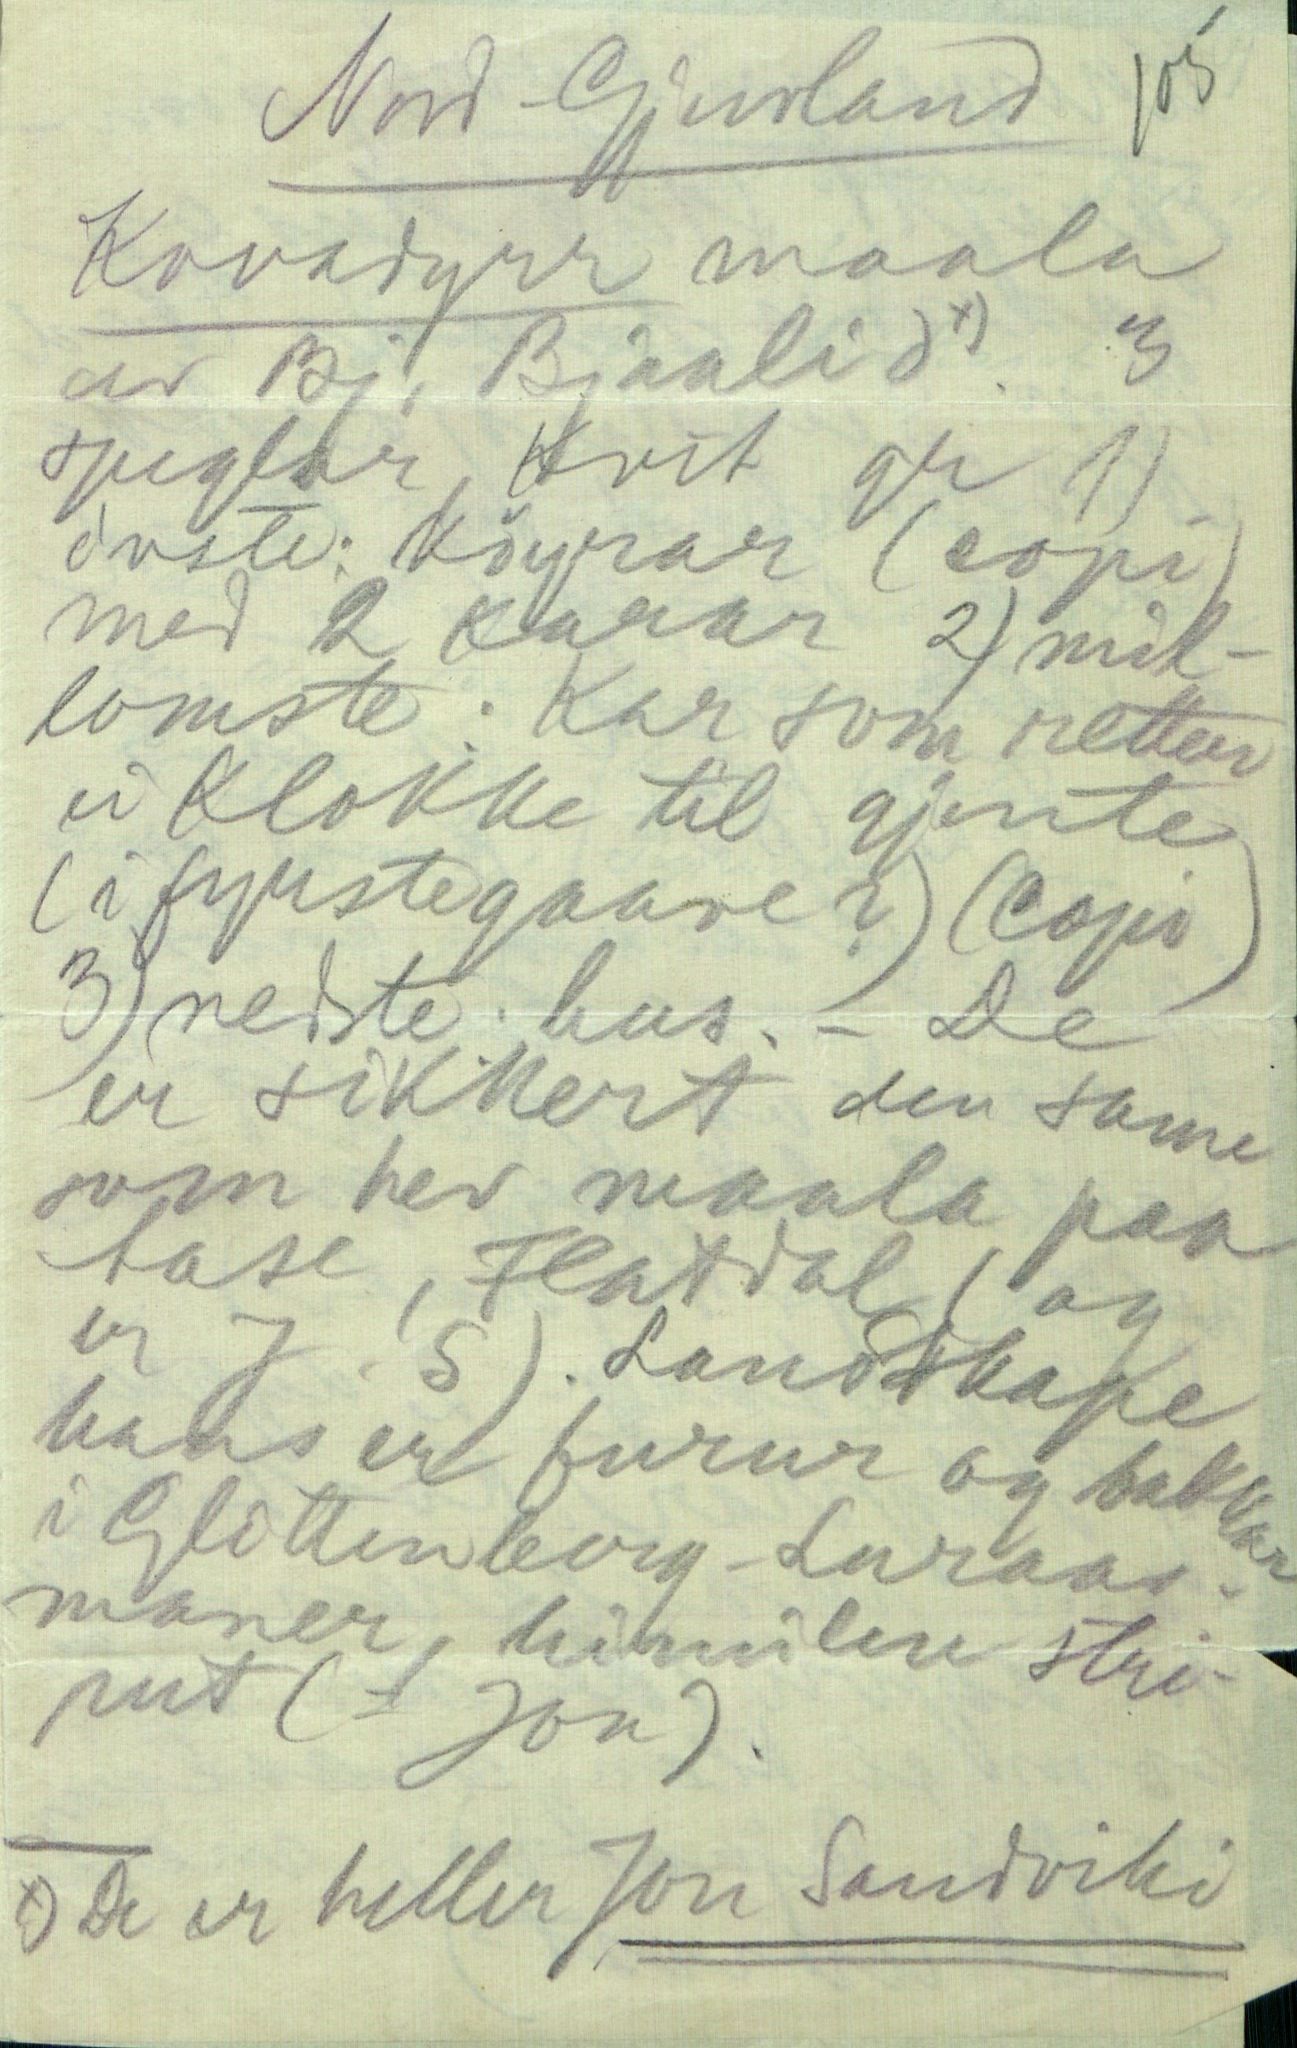 Nord Gjuvland
Kovadyrr maala
av Bj. Bjaalid x). 3
speglar, Kvit gr 1)
óvste: Köyrar (copi)
med 2 karar 2) mil-
lomste: Kar som retter
ei Klokke til gjente
(i fyrstegaave?) (Copi)
3) nedste: hus. - De
er sikkert den same
som hev maala paa
Hase, Flatdal, og
er J. S). Landskape
hans er furur og bakkar
i Glittenberg-Luraas-
maner, himilen stri-
put (± Jon).
x) De er heller Jon Sandviki